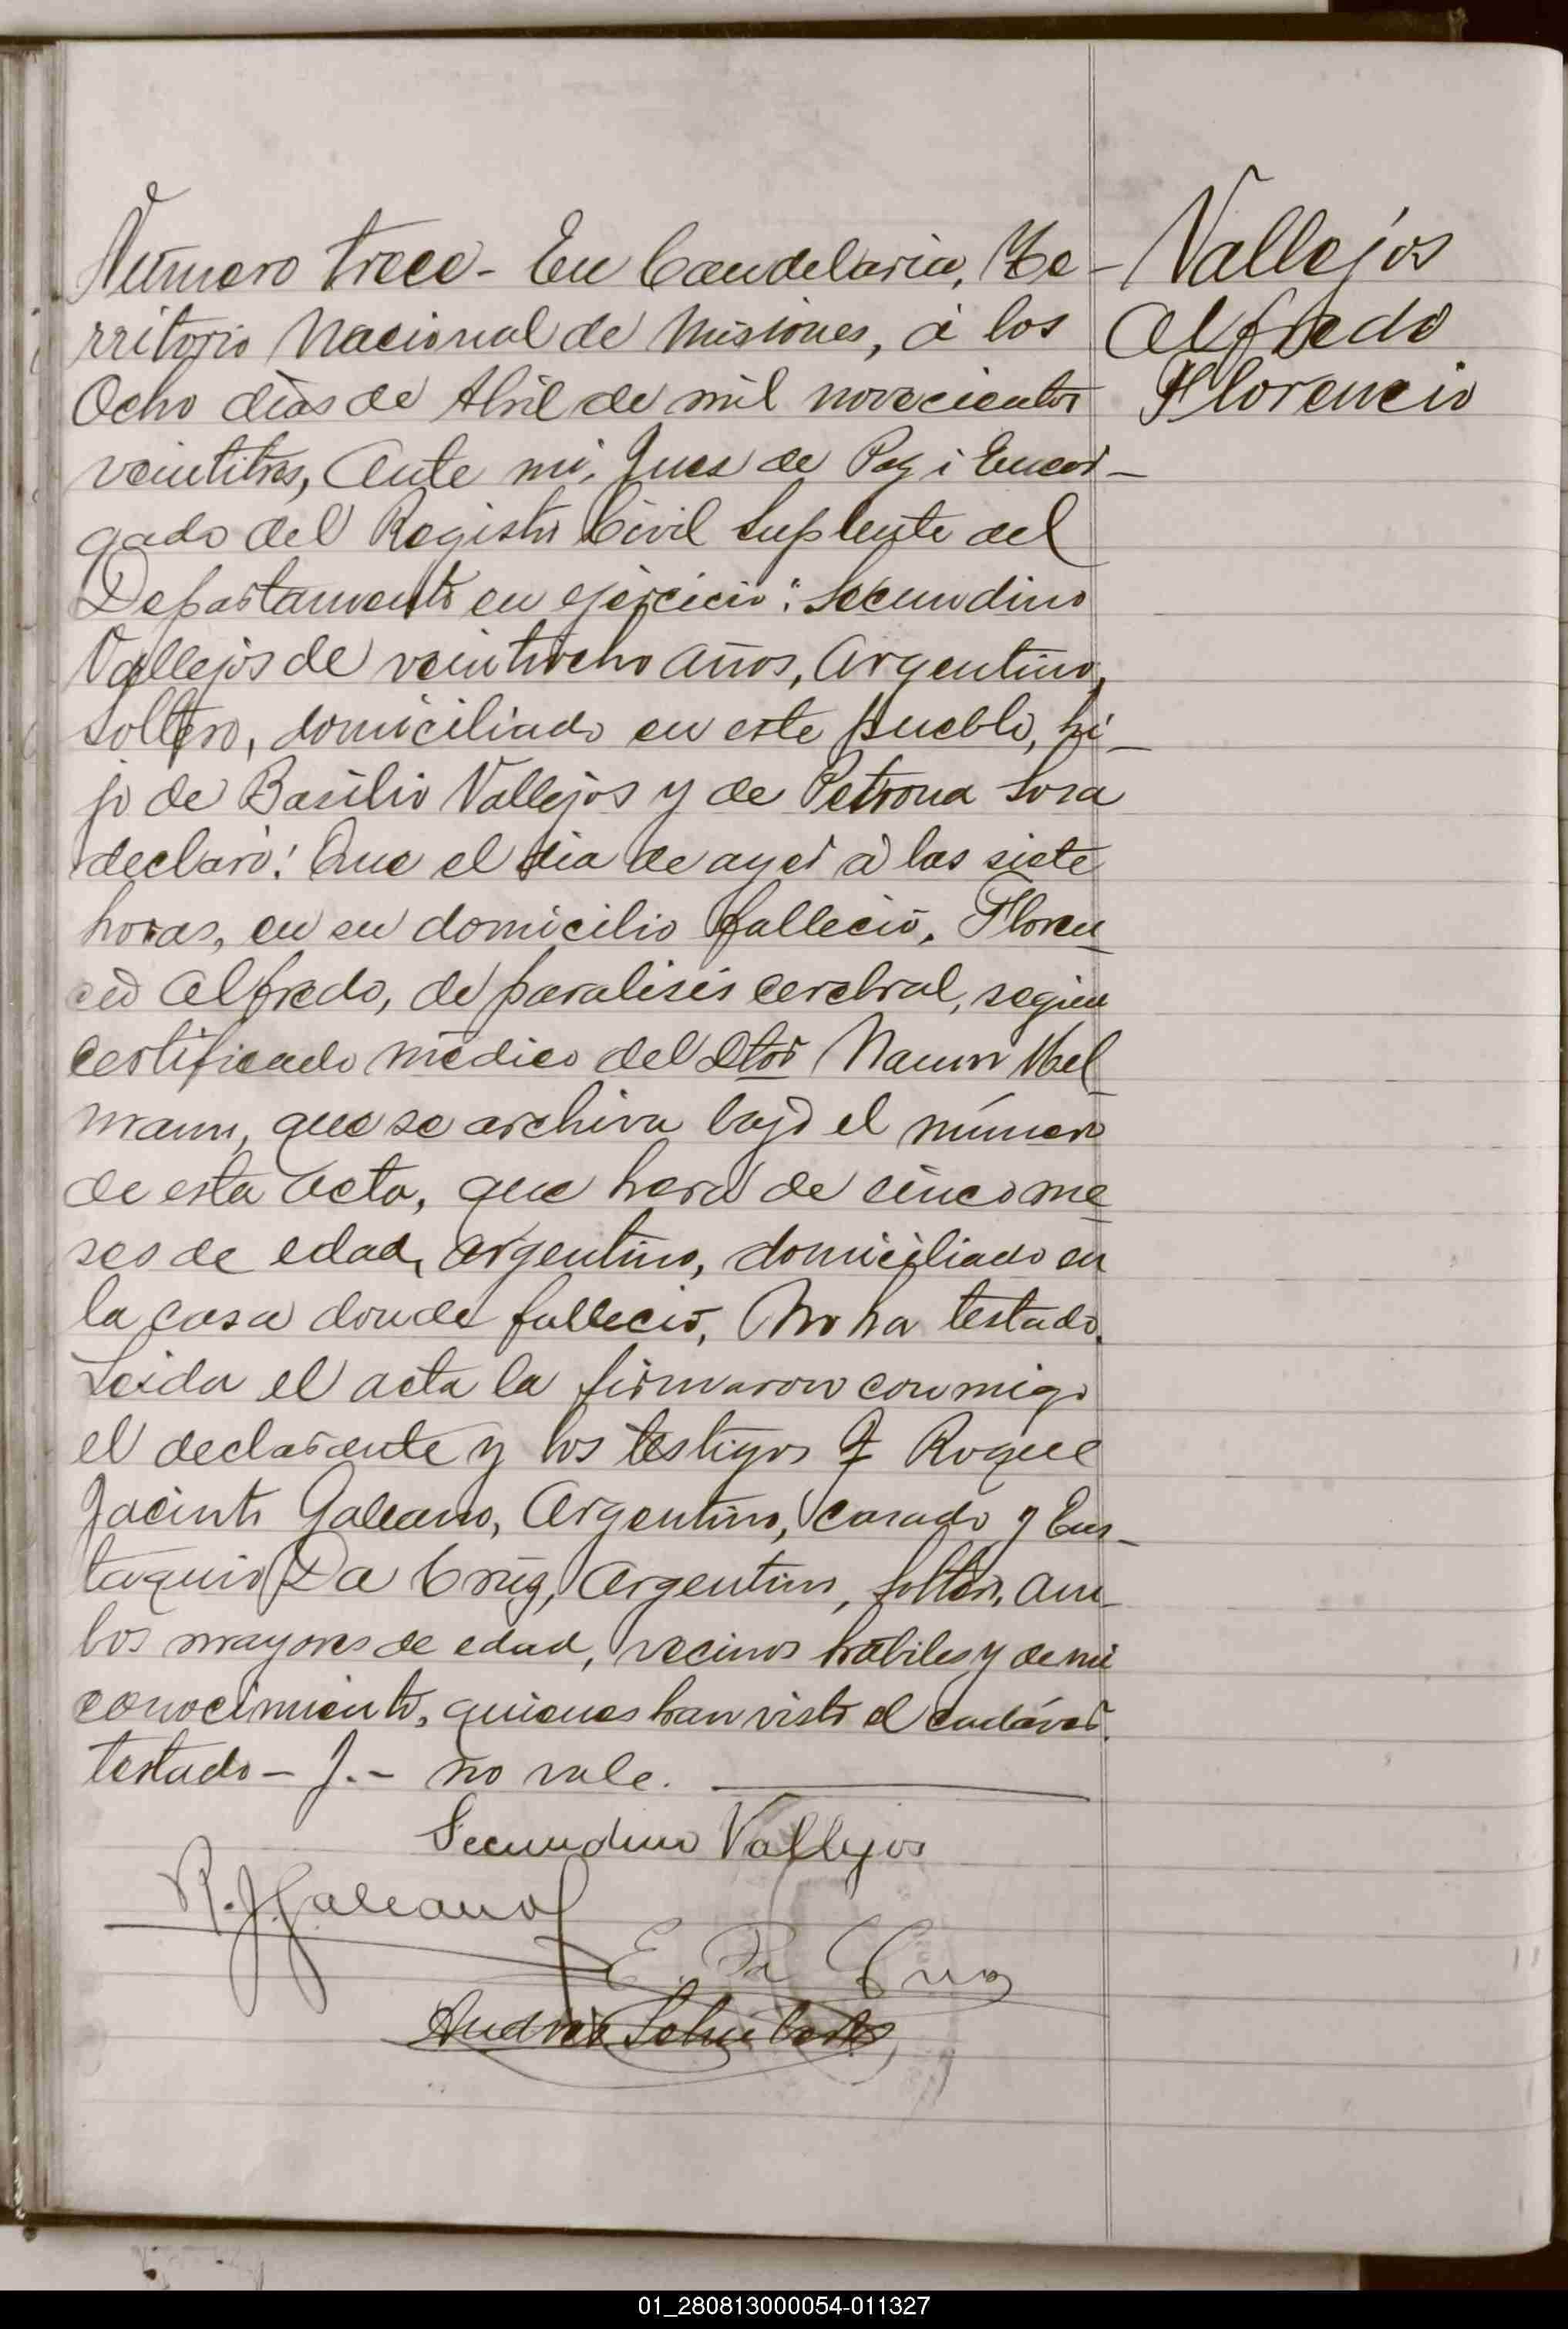 Número trece - En Candelaria, Te-
rritorio Nacional de Misiones, á los
Ocho dias de Abril de mil novecientos
veintitres, Ante mi, Jues de Paz i Encar-
gado del Registro Civil Suplente del
Departamento en ejercicio: Secundino
Vallejos de veintiocho años, Argentino,
soltero, domiciliado en este pueblo, hi-
jo de Basilio Vallejos y de Petrona Sosa
declaró: Que el dia de ayer á las siete
horas, en su domicilio falleció, Floren-
cio Alfredo, de paralisis cerebral, según
certificado médico del Dtor Naum
mann, que se archiva bajo el número
de esta acta, que hera de cinco me-
ses de edad, argentino, domiciliado en
la casa donde falleció, No ha testado.
Leida el acta la firmaron conmigo
el declarante y los testigos J Roque
Jacinto Galeano, Argentino, casado y Eus-
taquio Da Cruz, Argentino, soltero, am-
bos mayores de edad, vecinos hábiles y de mi
conocimiento, quienes han visto el cadáver.
testado - J. - no vale.
Secundino Vallejos
R. J. Galeano
E. Da Cruz
Andrés
Vallejos
Alfredo
Florencio
01_280813000054-011327